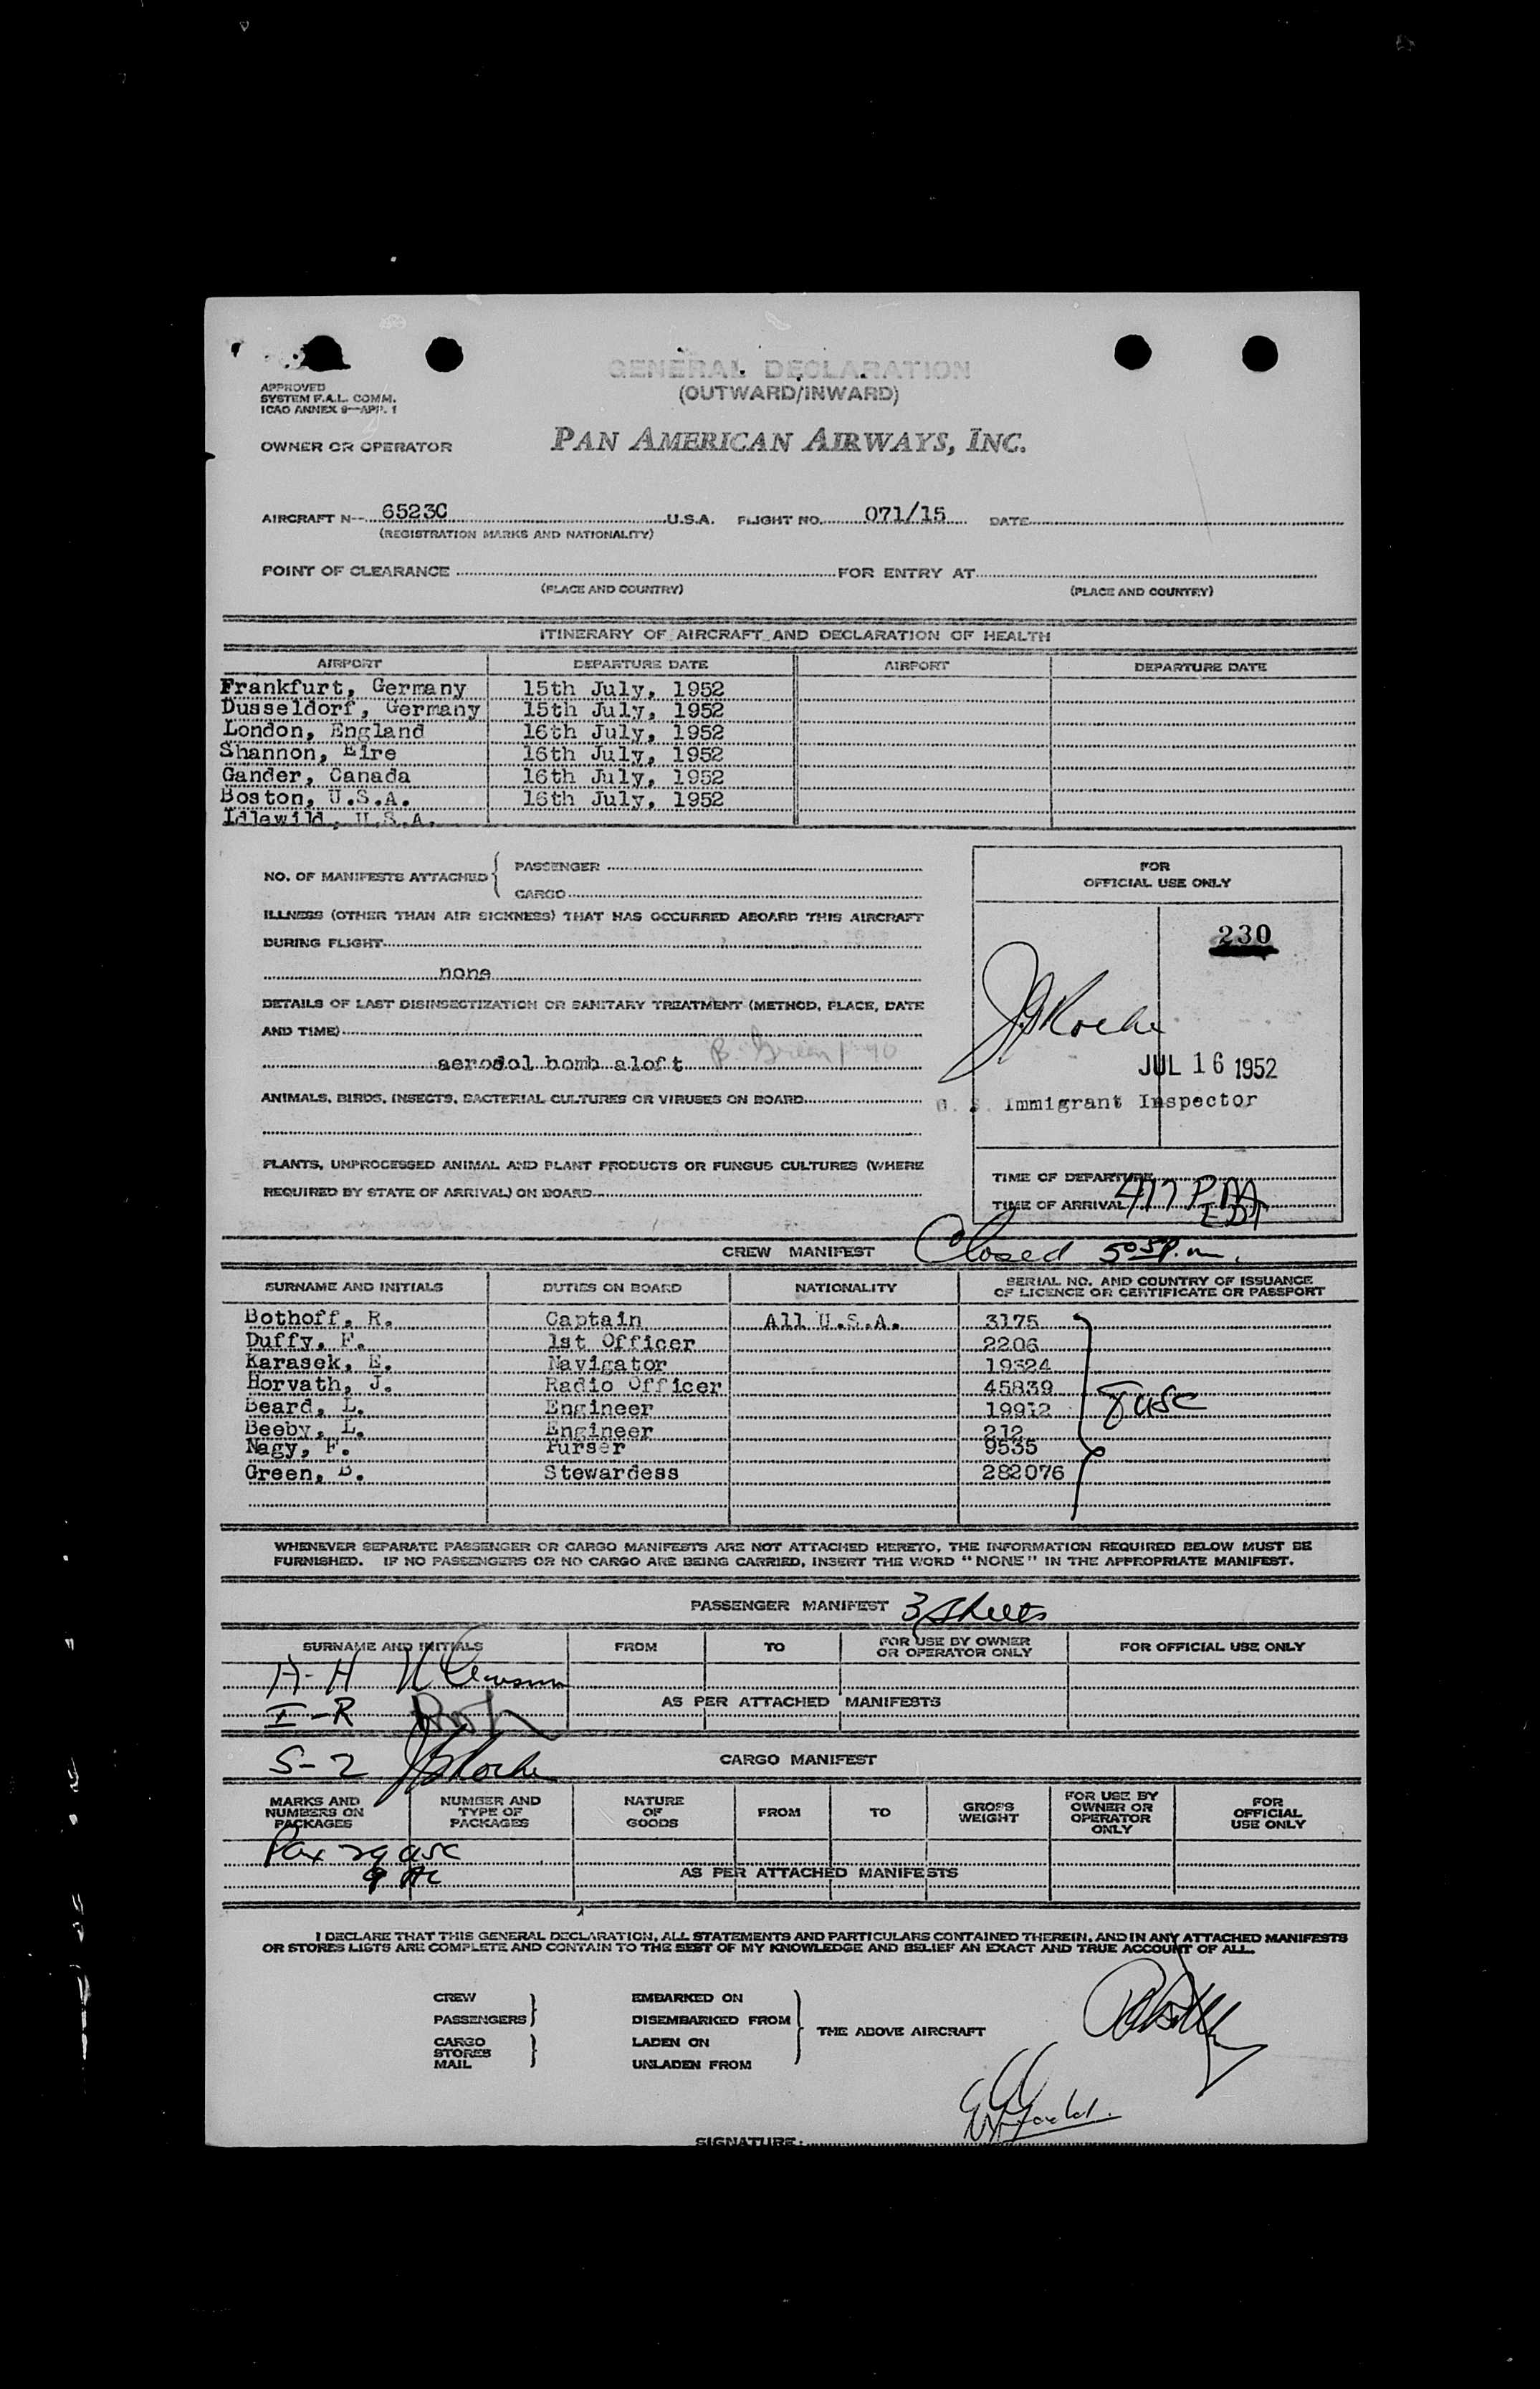 GENERAL DECLARATION
(OUTWARD/INWARD)
APPROVED
SYSTEM F.A.L. COMM.
ICAO ANNEX 9—APP. 1
OWNER OR OPERATOR PAN AMERICAN AIRWAYS, INC.
AIRCRAFT N-- 6523C U.S.A. FLIGHT NO. 071/15 DATE
(REGISTRATION MARKS AND NATIONALITY)
POINT OF CLEARANCE FOR ENTRY AT
(PLACE AND COUNTRY) (PLACE AND COUNTRY)
ITINERARY OF AIRCRAFT AND DECLARATION OF HEALTH
AIRPORT DEPARTURE DATE AIRPORT DEPARTURE DATE
Frankfurt, Germany 15th July, 1952
Dusseldorf, Germany 15th July, 1952
London, England 16th July, 1952
Shannon, Eire 16th July, 1952
Gander, Canada 16th July, 1952
Boston, U.S.A. 16th July, 1952
Idlewild, U.S.A.
NO. OF MANIFESTS ATTACHED { PASSENGER
CARGO
ILLNESS (OTHER THAN AIR SICKNESS) THAT HAS OCCURRED ABOARD THIS AIRCRAFT
DURING FLIGHT
none
DETAILS OF LAST DISINSECTIZATION OR SANITARY TREATMENT (METHOD, PLACE, DATE
AND TIME)
aerosol bomb aloft B. Green
ANIMALS, BIRDS, INSECTS, BACTERIAL CULTURES OR VIRUSES ON BOARD
PLANTS, UNPROCESSED ANIMAL AND PLANT PRODUCTS OR FUNGUS CULTURES (WHERE
REQUIRED BY STATE OF ARRIVAL) ON BOARD
FOR
OFFICIAL USE ONLY
230
JUL 16 1952
U. S. Immigrant Inspector
TIME OF DEPARTURE
TIME OF ARRIVAL 417 PM
EDT
CREW MANIFEST Closed 505 p.m.
SURNAME AND INITIALS DUTIES ON BOARD NATIONALITY SERIAL NO. AND COUNTRY OF ISSUANCE
OF LICENCE OR CERTIFICATE OR PASSPORT
Bothoff, R. Captain All U.S.A. 3175
Duffy, F. 1st Officer 2206
Karasek, E. Navigator 19324
Horvath, J. Radio Officer 45839
Beard, L. Engineer 19912 8 usc
Beeby, L. Engineer 212
Nagy, F. Purser 9535
Green, B. Stewardess 282076
WHENEVER SEPARATE PASSENGER OR CARGO MANIFESTS ARE NOT ATTACHED HERETO, THE INFORMATION REQUIRED BELOW MUST BE
FURNISHED. IF NO PASSENGERS OR NO CARGO ARE BEING CARRIED, INSERT THE WORD "NONE" IN THE APPROPRIATE MANIFEST.
PASSENGER MANIFEST 3 sheets
SURNAME AND INITIALS FROM TO FOR USE BY OWNER
OR OPERATOR ONLY FOR OFFICIAL USE ONLY
A-H
AS PER ATTACHED MANIFESTS
I-R
S-Z
CARGO MANIFEST
MARKS AND
NUMBERS ON
PACKAGES NUMBER AND
TYPE OF
PACKAGES NATURE
OF
GOODS FROM TO GROSS
WEIGHT FOR USE BY
OWNER OR
OPERATOR
ONLY FOR
OFFICIAL
USE ONLY
Pax 29 usc
AS PER ATTACHED MANIFESTS
I DECLARE THAT THIS GENERAL DECLARATION, ALL STATEMENTS AND PARTICULARS CONTAINED THEREIN, AND IN ANY ATTACHED MANIFESTS
OR STORES LISTS ARE COMPLETE AND CONTAIN TO THE BEST OF MY KNOWLEDGE AND BELIEF AN EXACT AND TRUE ACCOUNT OF ALL.
CREW EMBARKED ON
PASSENGERS } DISEMBARKED FROM
THE ABOVE AIRCRAFT
CARGO LADEN ON
STORES }
MAIL UNLADEN FROM
SIGNATURE: